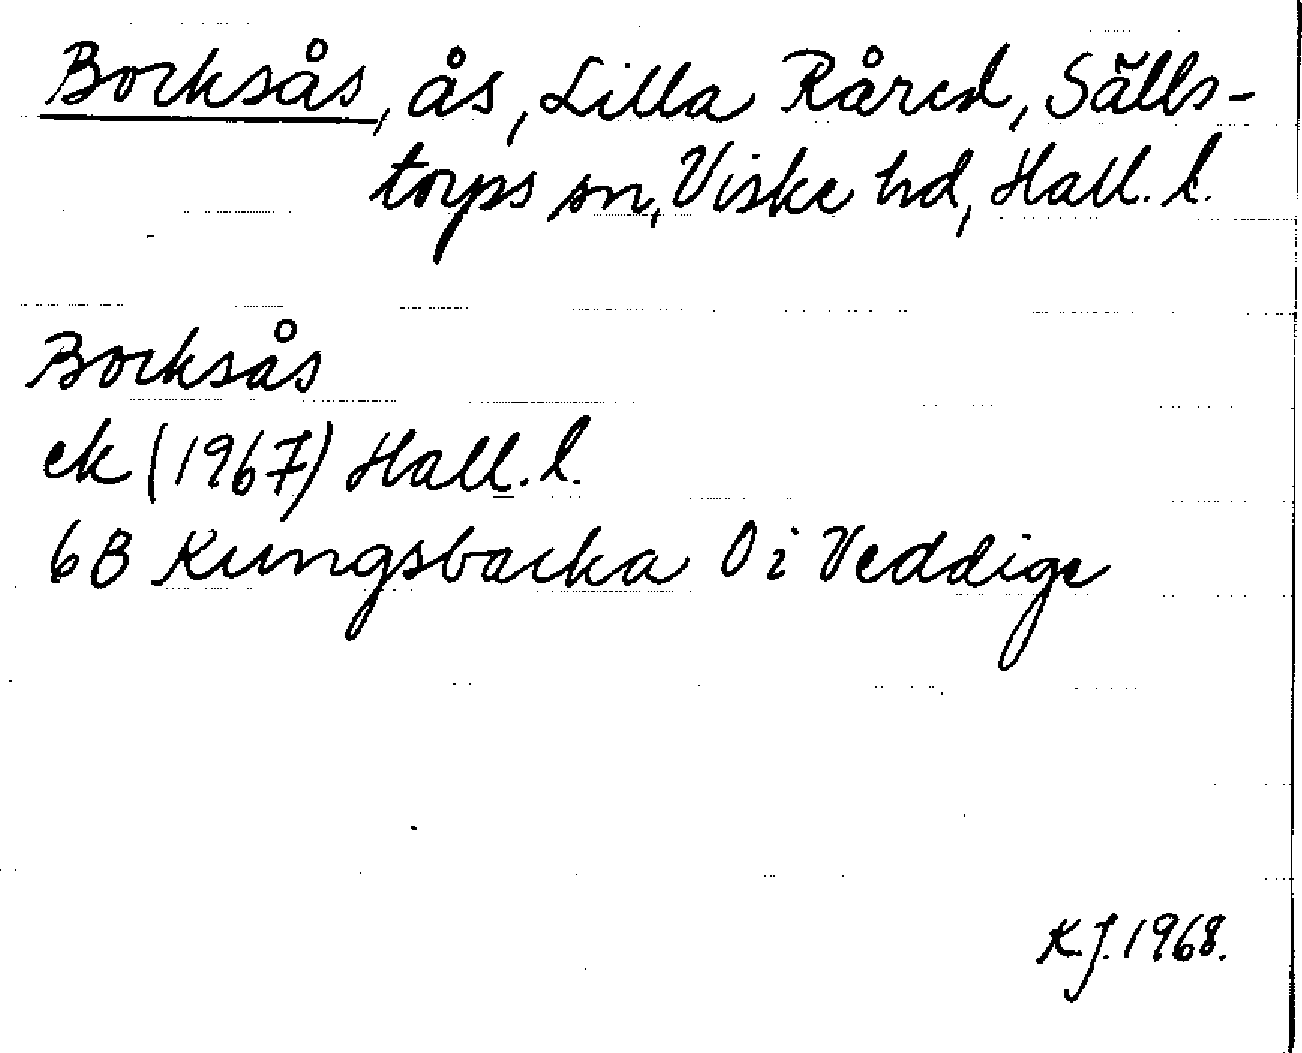 Bocksås, ås, Lilla Råred, Sälls-
torps sn, Viske hd, Hall. l.
Bocksås
ek (1967) Hall. l.
6B Kungsbacka O i Veddige
KJ. 1968.